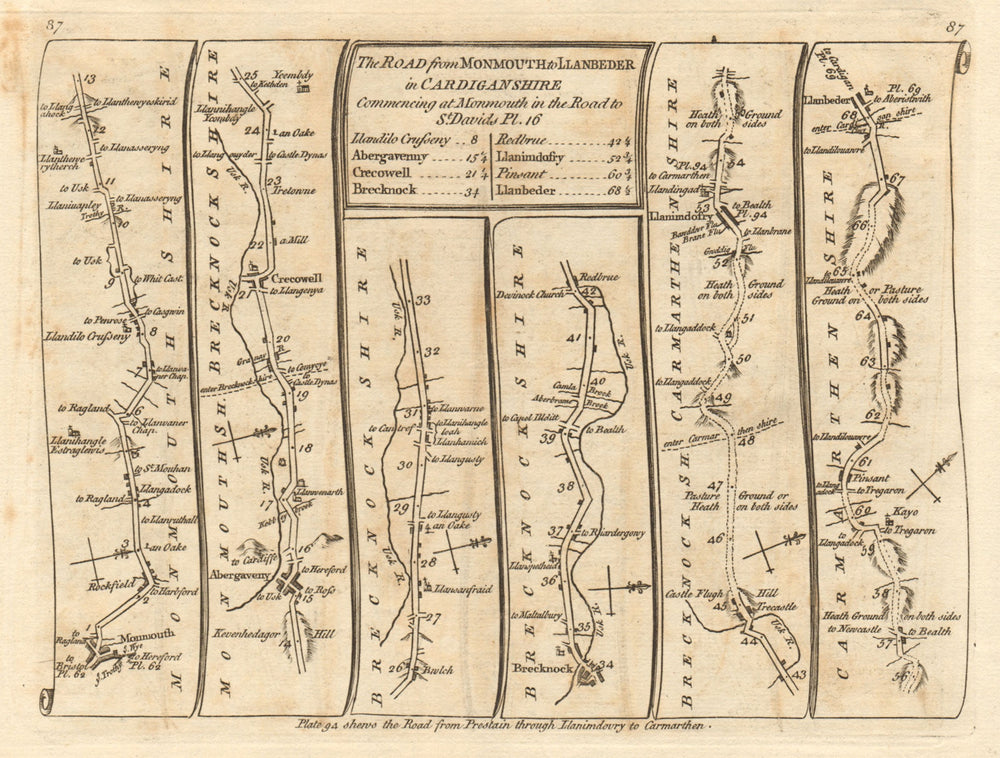 87
87
The ROAD from MONMOUTH to LLANBEDER
in CARDIGANSHIRE
Commencing at Monmouth in the Road to
St. Davids Pl. 16
Llandilo Crufseny .. 8
Abergavenny ..... 15 1/4
Crecowell ..... 21 1/4
Brecknock ..... 34
Redbrue ..... 42 1/4
Llanimdofry ..... 52 3/4
Pinsant ..... 60 3/4
Llanbeder ..... 68 1/2
MONMOUTHSHIRE
13
to Llanthenyeskirid
12
to Llanasseryng
11
to Usk
to Llanasseryng
Trothy R.
10
to Usk
9
to Whit Cast.
to Casgwin
to Penrose
8
Llandilo Crufseny
7
to Llanwaner Chap.
6
to Ragland
to Llanvaner Chap.
Llanihangle
Estraglewis
5
to St. Mouhan
Llangadock
to Ragland
4
to Llanruthall
3
an Oake
Rockfield
to Harbford
2
1
to Ragland
Monmouth
to Bristol
Pl. 62
to Hereford
Pl. 62
MONMOUTHSH
BRECKNOCKSHIRE
25
Ycombdy
to Kethden
Llannihangle
Ycombdy
24
an Oake
to Castle Dynas
Usk R.
23
Tretowne
22
a Mill
Usk R.
Crecowell
21
to Llangenya
20
enter Brecknock shire
to Castle Dynas
19
18
Usk R.
Llanwenarth
17
Kebby Creek
16
to Cardiffe
to Hereford
Abergaveny
to Usk
to Ross
15
Kevenhedagor
Hill
14
BRECKNOCKSHIRE
33
Usk R.
32
31
to Llanvarne
to Llanihangle
to Cantref
Llanhamich
30
to Llangusty
29
to Llangusty
an Oake
Usk R.
28
Llansanfraid
27
26
Bwlch
BRECKNOCKSHIRE
Redbrue
42
Devinock Church
41
Usk R.
40
Camla Brook
Aberbrane
39
to Bealth
38
37
to Riardergowy
36
to Maltalbury
35
Usk R.
34
Brecknock
BRECKNOCK SH
CARMARTHENSHIRE
Heath
on both
Ground
sides
54
Pl. 94
to Carmarthen
Llandingad
53
to Bealth
Pl. 94
Llanimdofry
to Llanbrane
52
Heath
on both
Ground
sides
51
to Llangaddock
50
to Llangaddock
49
enter Carmar then shire
48
47
Pasture
Heath
Ground or
on both sides
46
Castle Flugh
Hill
Trecastle
45
44
Usk R.
43
CARMARTHENSHIRE
to Cardigan
Pl. 69
Pl. 69
to Aberistwith
Llanbeder
68
enter Cardi gan shire
67
66
65
Heath
Ground on
or Pasture
both sides
64
63
62
61
Pinsant
to Tregaron
60
Kayo
to Tregaron
to Llangadock
59
58
Heath Ground
on both sides
to Newcastle
to Bealth
57
56
Plate 94 shews the Road from Prestain through Llanimdovry to Carmarthen.